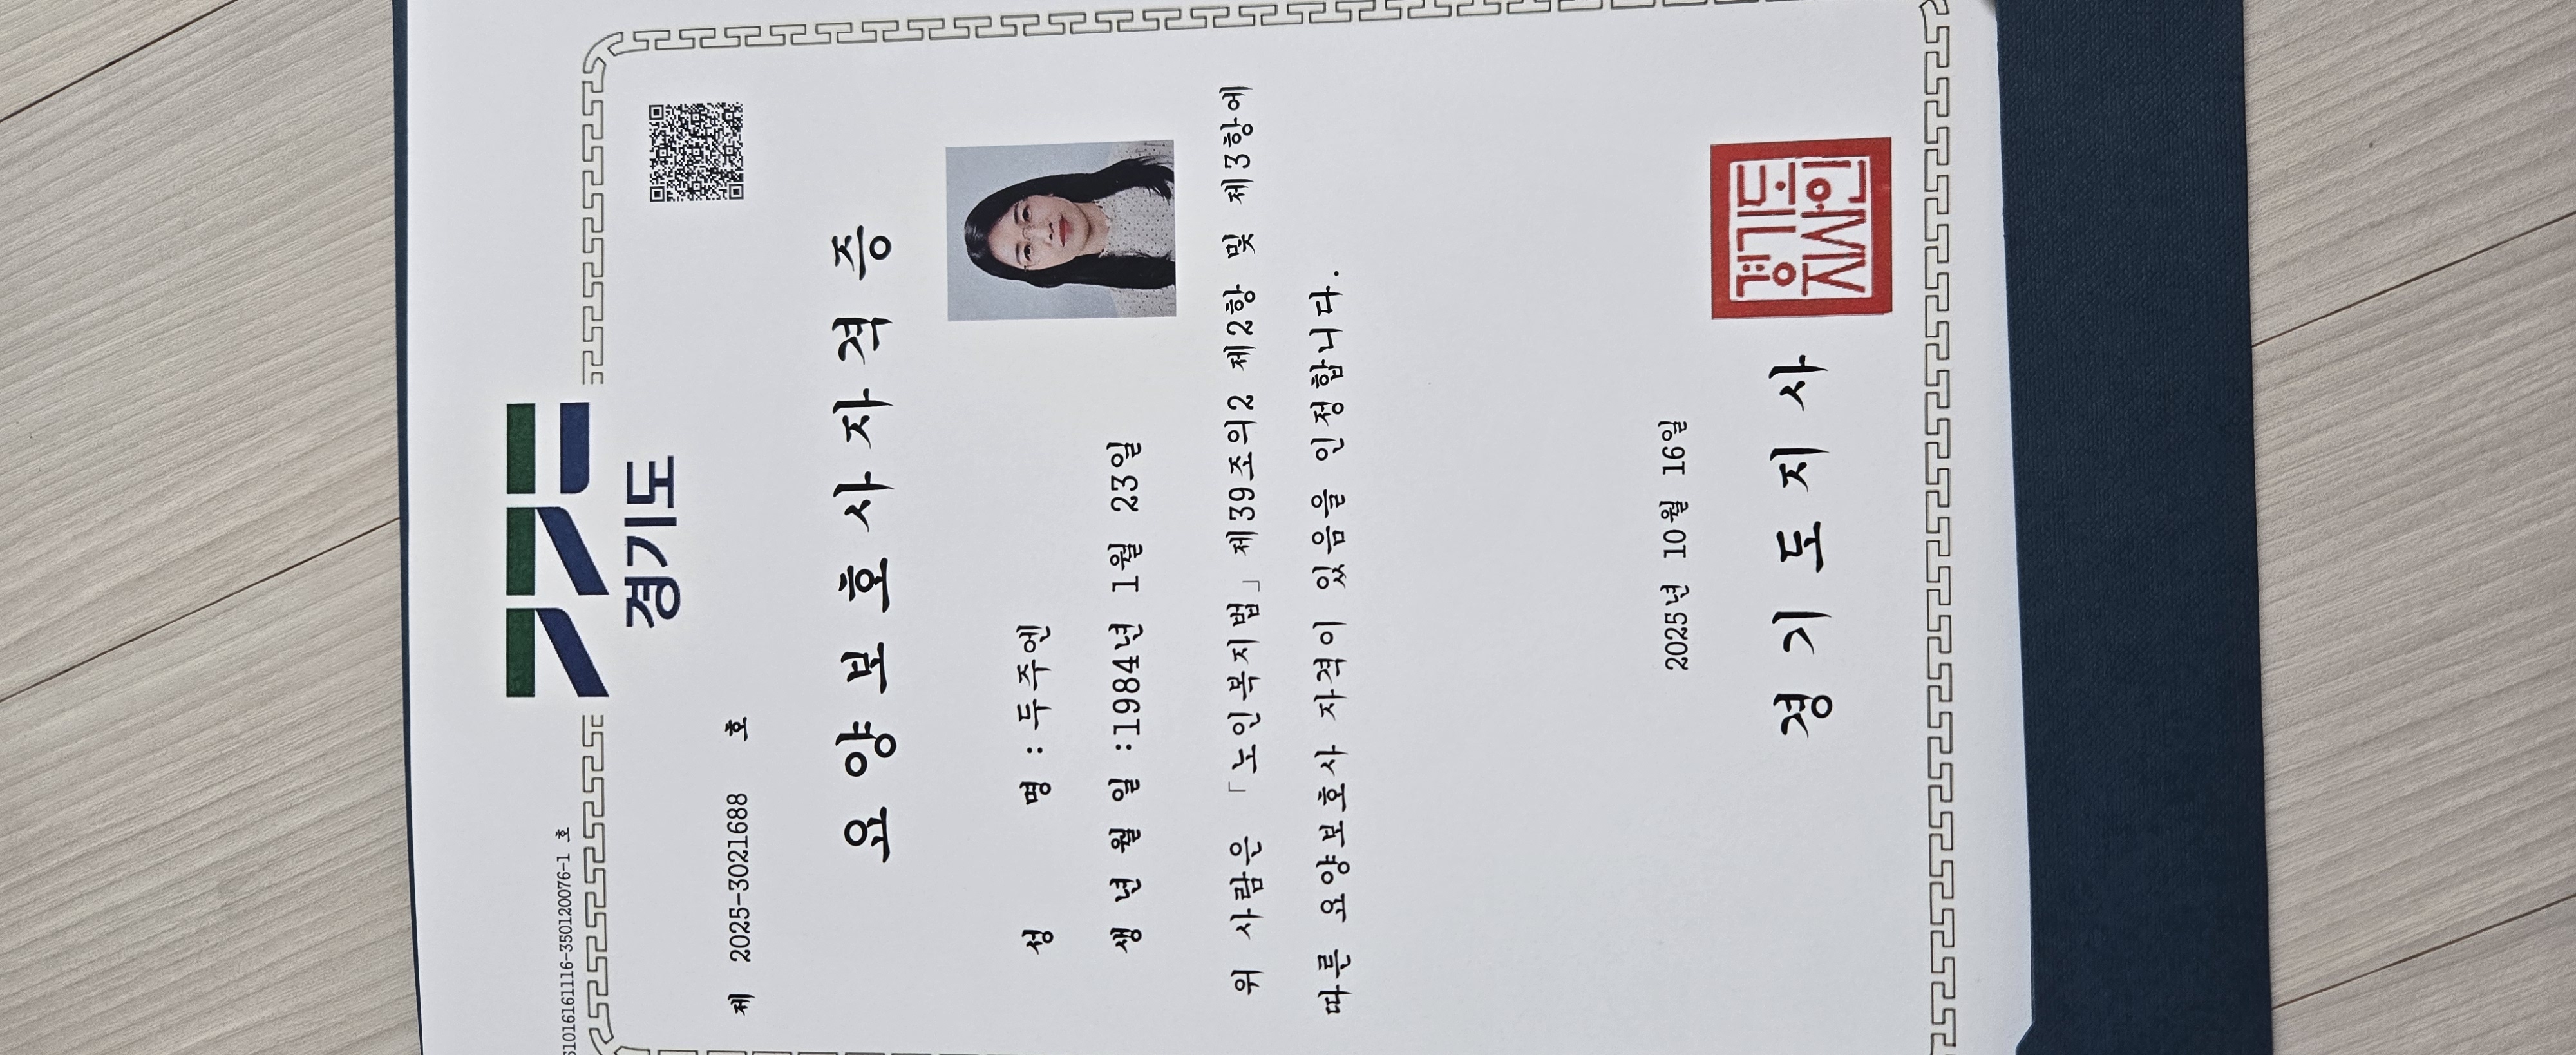 S1016161116-350120076-1 호
경기도
제 2025-3021688 호
요양보호사자격증
성 명 : 두주엔
생 년 월 일 :1984년 1월 23일
위 사람은 「노인복지법」 제39조의2 제2항 및 제3항에
따른 요양보호사 자격이 있음을 인정합니다.
2025년 10월 16일
경기도지사
경기도
지사인